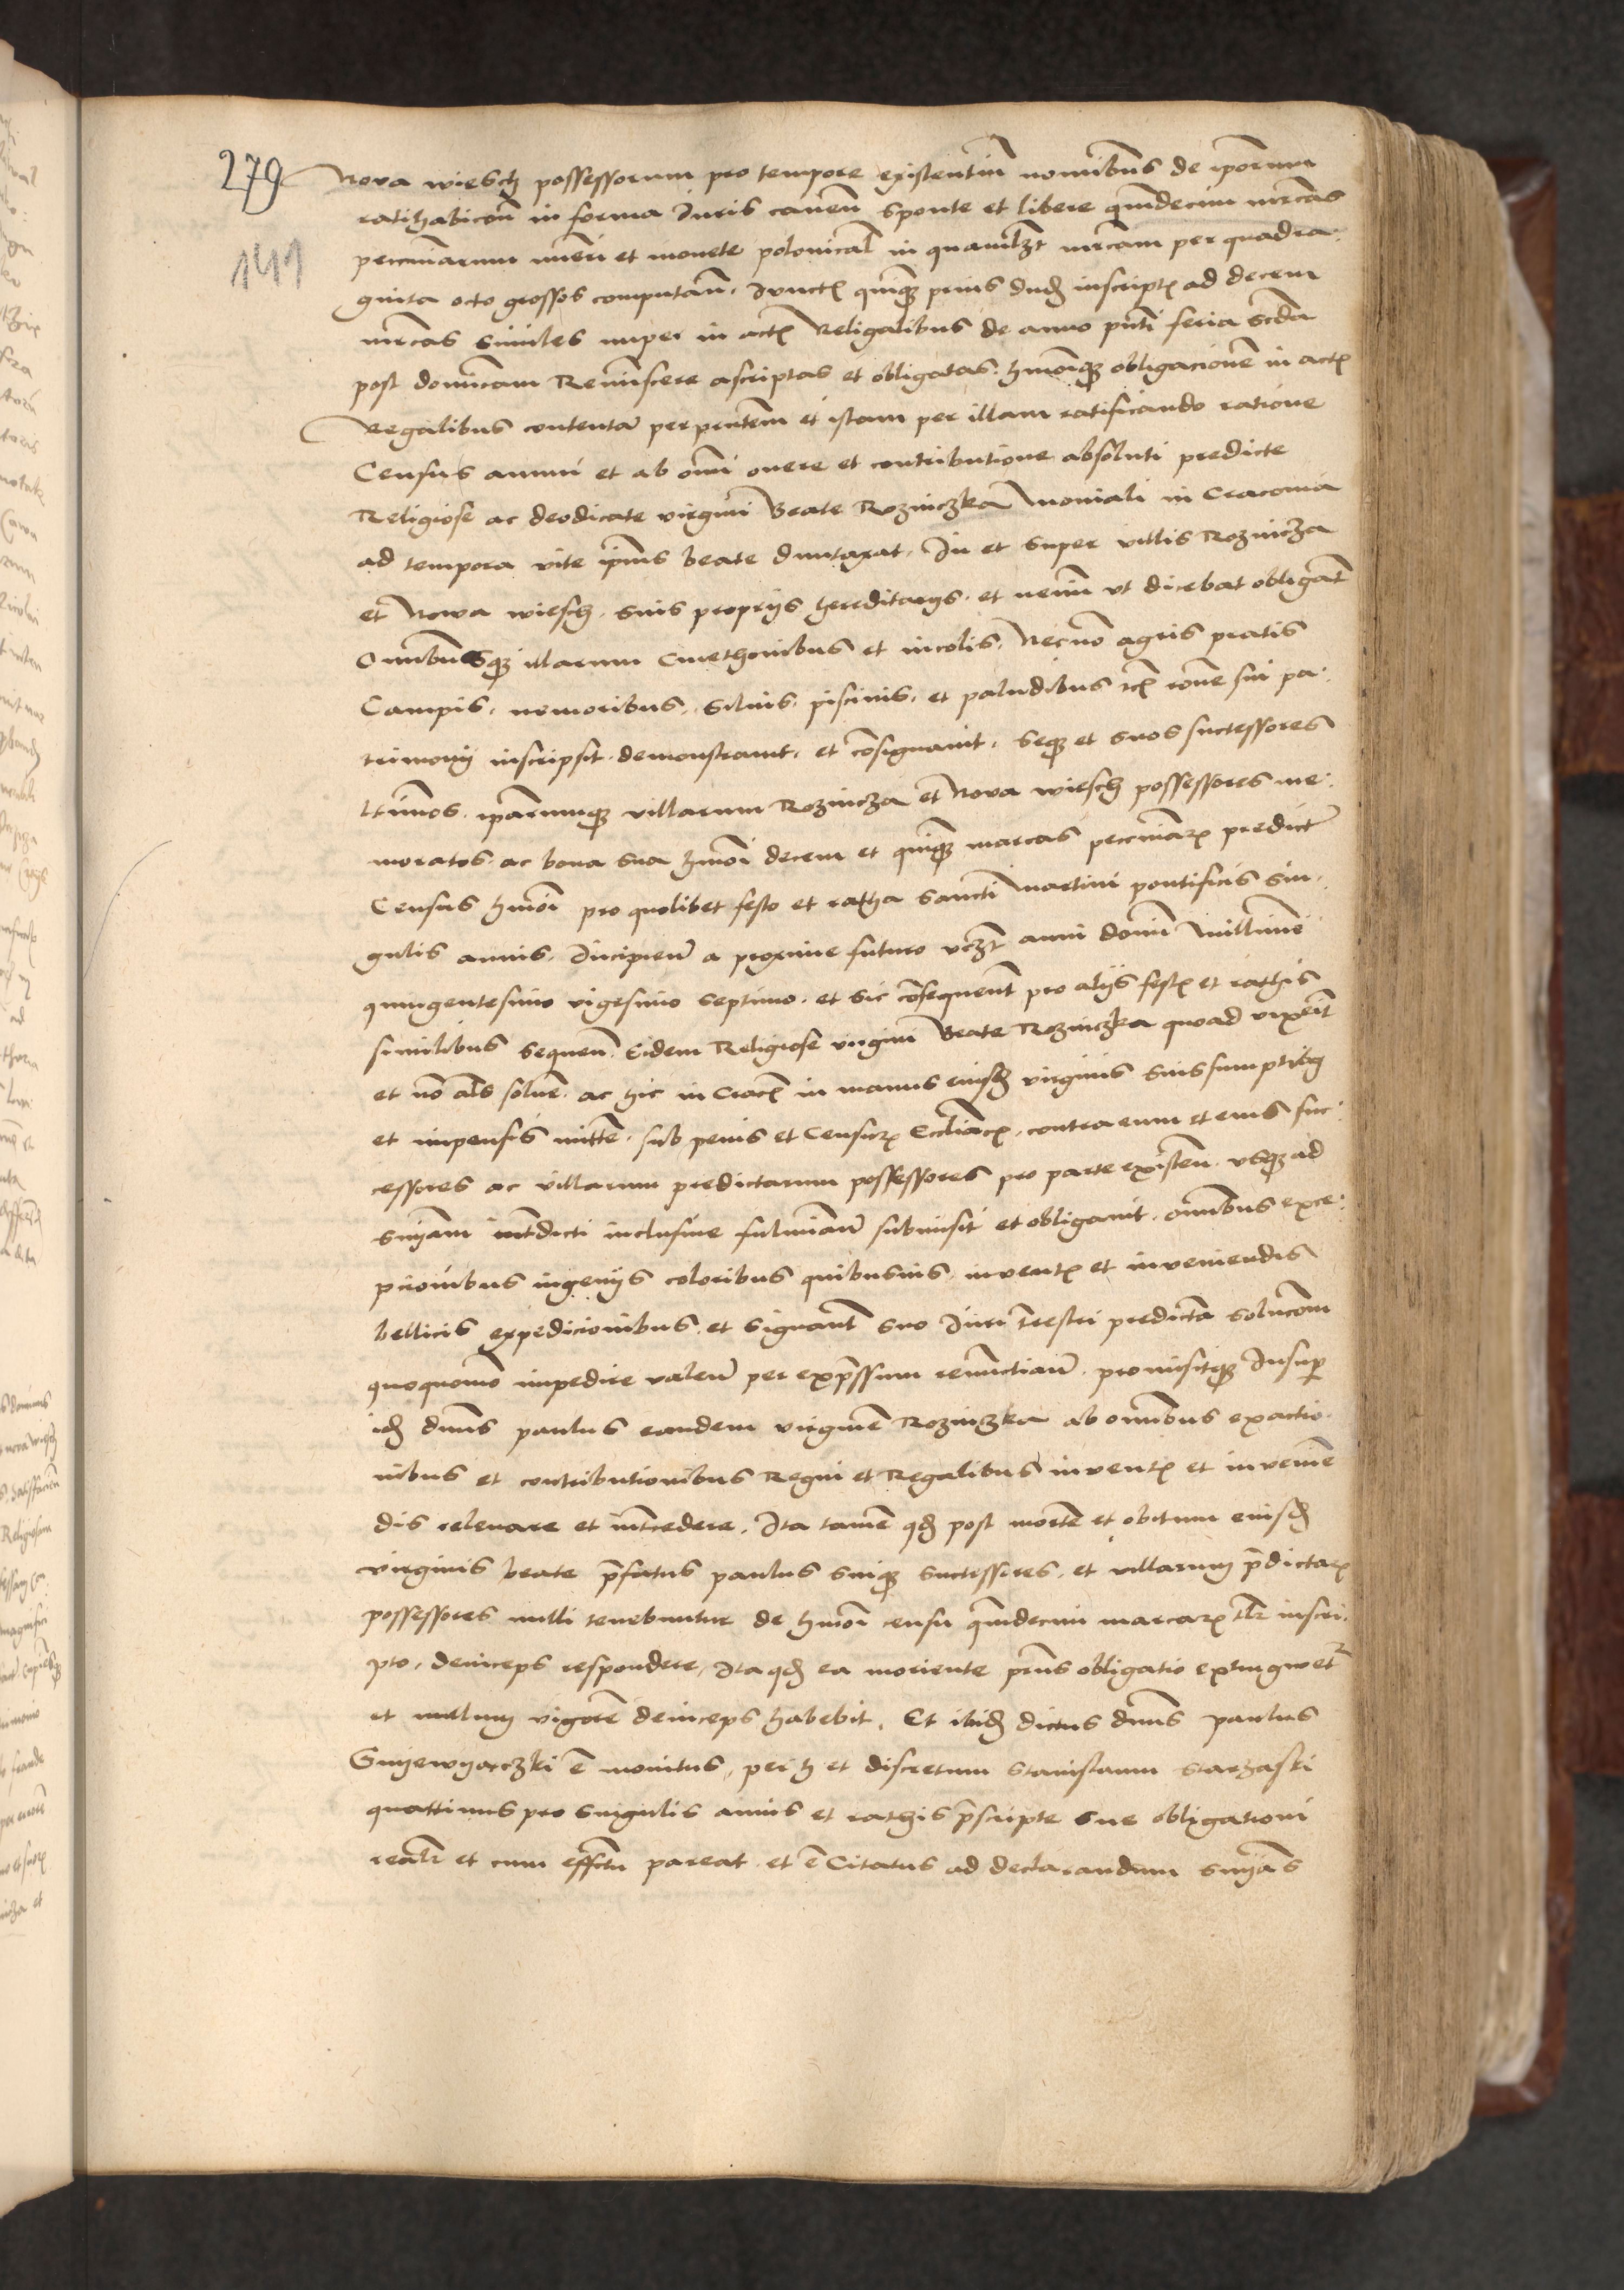 279
141
Nova wiesch possessorum pro tempore existentiũ nominibus de ip̃orum
ratihabicoñ in forma Juris caveñ sponte et libere quindecim mrcas
pecuniarum nu͂eri et monete polonical̃ in quamlꝫt mrcam per quadra:
ginta octo grossos computañ. Junctꝭ quinqꝫ prius dudꝫ inscriptꝭ ad decem
mrcas similes nuper in actꝭ Religalibus de anno pñti feria scďa
post dominicam Reminiscere ascriptas et obligatas. hmõiqꝫ obligacionẽ in actꝭ
Regalibus contentã per pñtem et istam per illam ratificando ratione
Census annui et ab om̃i onere et contributione absoluti predicte
Religiose ac deodicate virgini Beate Rozniczka Moniali in Cracovia
ad tempora vite ip̃ius beate duntaxat. In et super villis Roznicza
et Nowa wiesch. suis proprijs hereditarijs. et nemini vt dicebat obligat̃
Omnibusqꝫ illarum Cmethonibus et incolis, Necnõ agris pratis
Campis, nemoribus, Siluis, piscinis, et paludibus rcꝭ rõne sui pa:
trimonij inscripsit. demonstrauit, et cõsignauit. seqꝫ et suos successores
ltimos. ip̃arumqꝫ villarum Roznicza et Nova wiesch possessores me:
moratos. ac bona sua hmõi decem et quinqꝫ marcas pecuniarꝫ predict̃
Census hmõi pro quolibet festo et ratha Sancti Martini pontificis sin:
gulis annis. Incipieñ a proxime futuro vcꝫt anni domini Millimi
quingentesimo vigesimo septimo. et sic cõsequent̃ pro alijs festꝭ et rathis
similibus sequeñ. Eidem Religiose virgini Beate Rozniczka quoad vixerit
et nõ als̃ soluẽ. ac hic in Cracꝭ in manus eiusdꝫ virginis suis sumptibꝫ
et impensis mittẽ. sub penis et Censurꝭ Eccliacꝭ, contra eum et eius suc:
cessores ac villarum predictarum possessores pro parte existeñ. vsqꝫ ad
snĩam int̃dicti inclusiue fulminañ submisit et obligauit. omnibus exce:
pcionibus ingenijs coloribus quibusuis. inventꝭ et inveniendis
bellicis expedicionibus. et signant̃ suo Juri t̃restri predictã solucoñm
quoquomõ impedire valeñ per exp̃ssum renunctiañ. promisitqꝫ Insuꝑ
idꝫ dñus paulus eandem virginẽ Rozniczka ab omnibus exactio:
nibus et contributionibus Regni et Regalibus inventꝭ et inveniẽ
dis releuare et int̃cedere. Ita tamẽ qdꝫ post mortẽ et obitum eiusdꝫ
virginis beate p̃fatus paulus suiqꝫ successores. et villarum p̃dictarꝫ
possessores nulli tenebuntur de hmõi censu quindecim marcarꝫ tl̃r inscri:
pto, deinceps respondere, Ita qdꝫ ea moriente pñs obligatio extingwet̃
et nullum vigorẽ deinceps habebit. Et ibidꝫ dictus dñus paulus
Gnyewyarczki ẽ monitus, per h et discretum Stanislaum Starzaski
quattinus pro singulis annis et rathis p̃scripte sue obligationi
realr̃ et cum effctu pareat. et ẽ Citatus ad declarandum snĩas